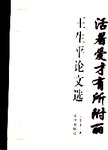 活着爱才有所附丽
王生平论文选